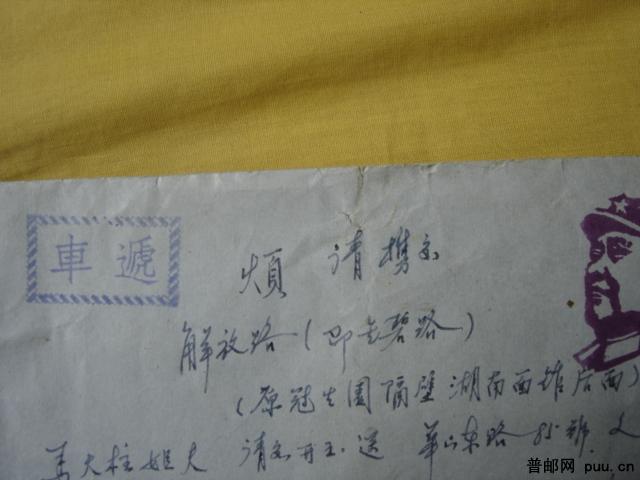 車遞
煩 请携交
解放路(即老碧路)
(原冠生園隔壁湖南西馆后面)
大柱姐夫 请交 送 華山東路85號
普邮网 puu.cn